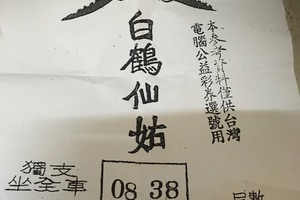 本參考資料僅供台灣
電腦公益彩券選號用
白鶴仙姑
獨支
坐全車
08 38